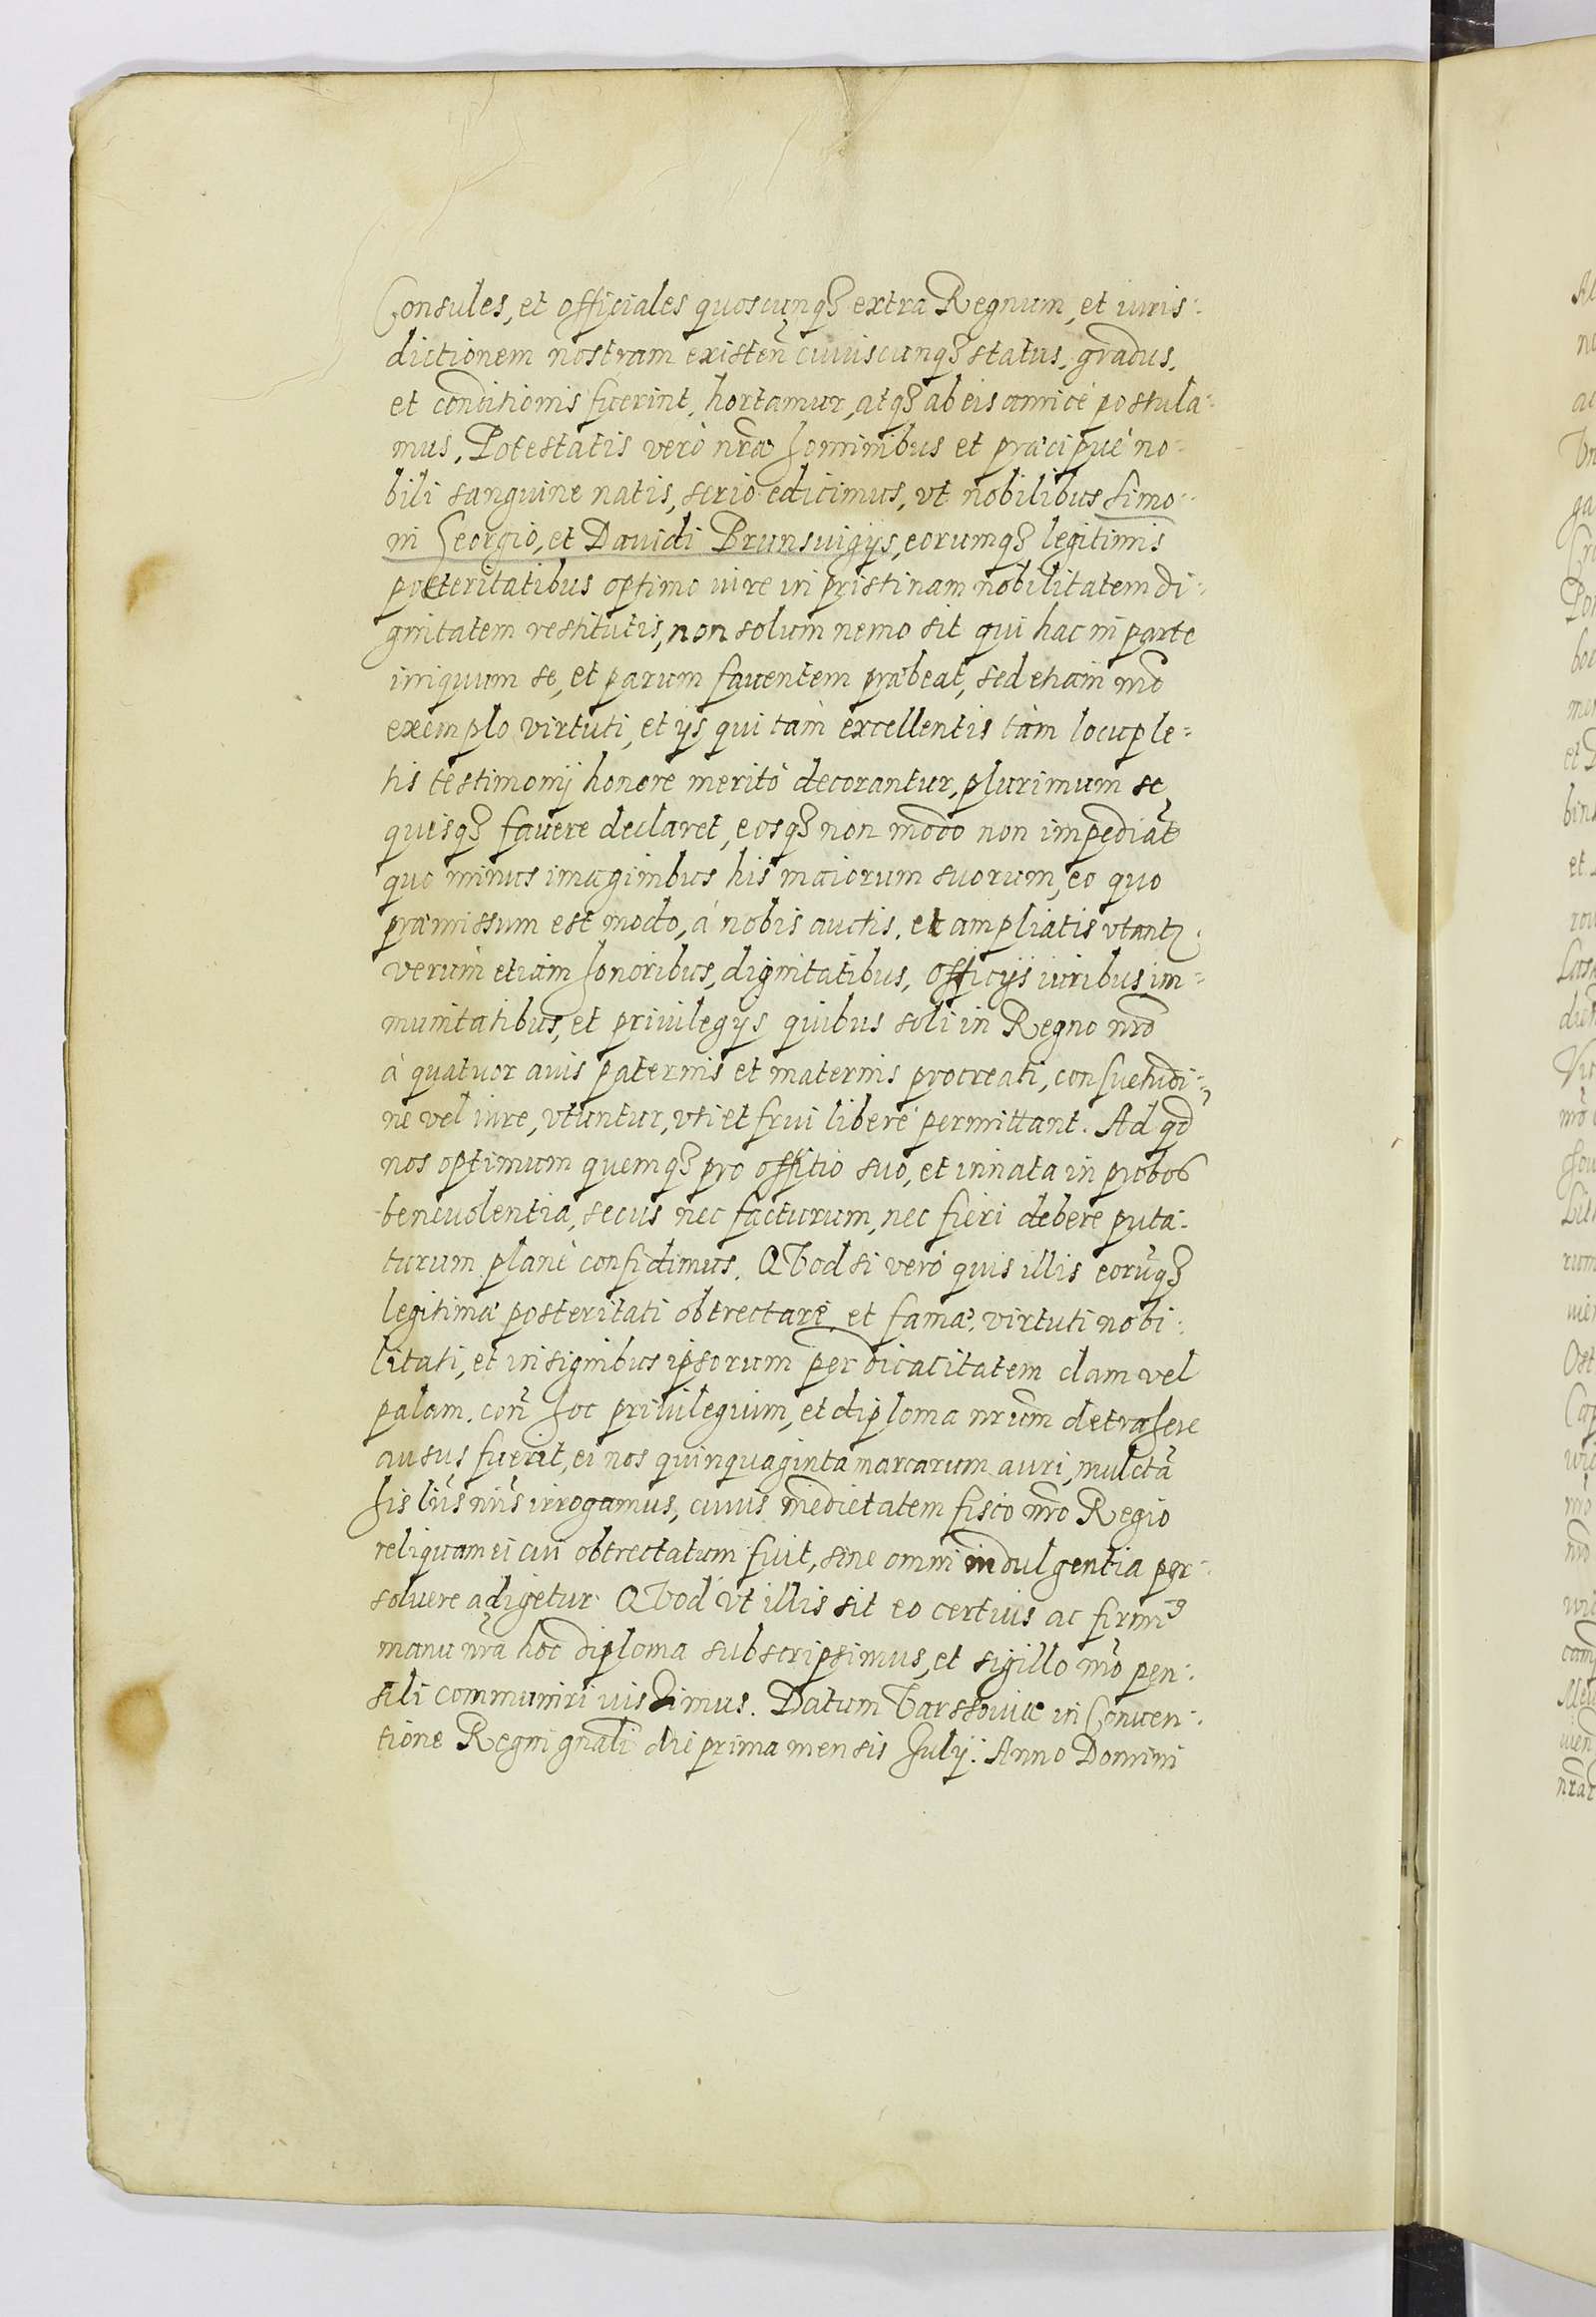 Consules, et officiales quoscunqꝫ extra Regnum, et iuris:
dictionem nostram existeñ cuiuscunqꝫ status, gradus,
et conditionis fuerint, hortamur, atqꝫ ab eis amicè postula:
mus, Potestatis verò nr̃æ hominibus et præcipuè no:
bili sanguine natis, seriò edicimus, vt nobilibus Simo:
ni Georgio, et Dauidi Brunsuigijs, eorumqꝫ legitimis
posteritatibus optimo iure in pristinam nobilitatem di:
gnitatem restitutis, non solum nemo sit qui hac in parte
iniquum se, et parum fauentem præbeat, sed etiam nr̃o
exemplo virtuti, et ijs qui tàm excellentis tàm locuple:
tis testimonij honore meritò decorantur, plurimum se
quisqꝫ fauere declaret, eosqꝫ non modo non impediat
quo minus imaginibus his maiorum suorum, eo quo
præmissum est modo, à nobis auctis, et ampliatis vtantꝛ.
verùm etiàm honoribus, dignitatibus, officijs iuribus im:
munitatibus, et priuilegijs quibus soli in Regno nr̃o
à quatuor auis paternis et maternis procreati, consuetudi:
ne vel iure, vtuntur, vti et frui liberè permittant. Ad qd̃
nos optimum quemqꝫ pro offitio suo, et innata in probos
beneuolentia, secus nec facturum, nec fieri debere puta:
turum planè confidimus. QVod si verò quis illis eorũqꝫ
legitimæ posteritati obtrectare et famæ, virtuti nobi:
litati, et insignibus ipsorum per dicacitatem clam vel
palam, coñ hoc priuilegium, et diploma nrũm detrahere
ausus fuerit, ei nos quinquaginta marcarum auri, mulctã
his lr̃is nr̃is irrogamus, cuius medietatem fisco nr̃o Regio
reliquam ei cui obtrectatum fuit, sine omni indulgentia per:
soluere adigetur. QVod vt illis sit eo certius ac firmiꝰ
manu nr̃a hoc diploma subscripsimus, et sigillo nr̃o pen:
sili communiri iussimus. Datum Varssouiæ in Conuen:
tione Regni gnãli die prima mensis Iulij. Anno Domini